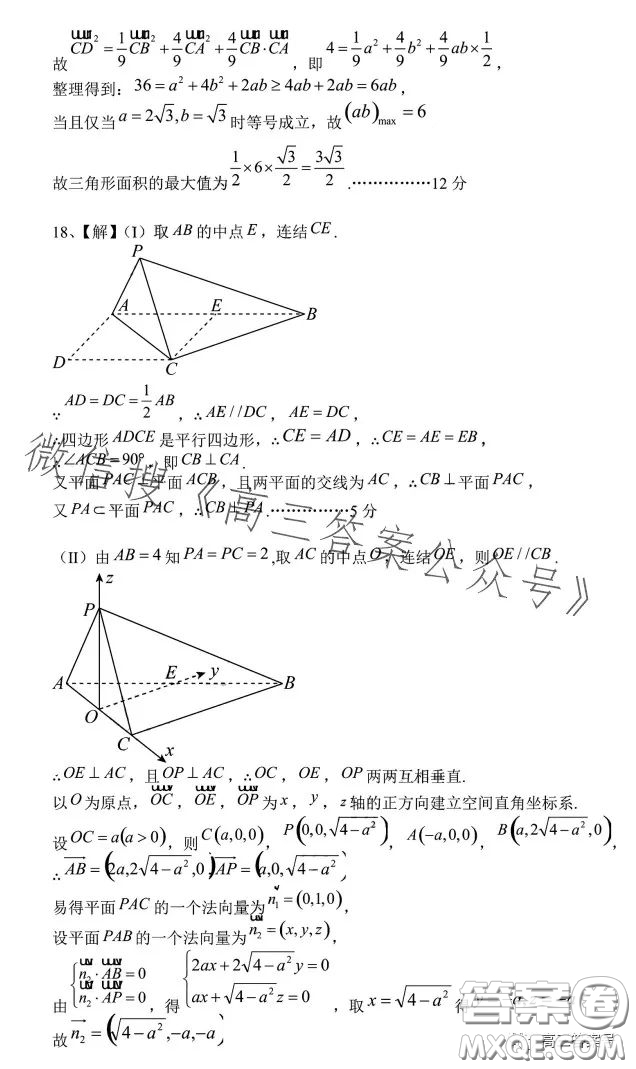 故 CD² = 1/9 CB² + 4/9 CA² + 4/9 CB·CA，即 4 = 1/9 a² + 4/9 b² + 4/9 ab × 1/2，
整理得到：36 = a² + 4b² + 2ab ≥ 4ab + 2ab = 6ab，
当且仅当 a = 2√3, b = √3 时等号成立，故 (ab)max = 6
故三角形面积的最大值为 1/2 × 6 × √3/2 = 3√3/2 .……………12 分
18、【解】（I）取 AB 的中点 E，连结 CE .
P
A E B
D C
∵ AD = DC = 1/2 AB，∴ AE // DC，AE = DC，
∴四边形 ADCE 是平行四边形，∴ CE = AD，∴ CE = AE = EB，
∴ ∠ACB = 90°，即 CB ⊥ CA .
又平面 PAC ⊥ 平面 ACB，且两平面的交线为 AC，∴ CB ⊥ 平面 PAC，
又 PA ⊂ 平面 PAC，∴ CB ⊥ PA .……………5 分
微信搜《高三答案公众号》
（II）由 AB = 4 知 PA = PC = 2 ,取 AC 的中点 O，连结 OE，则 OE // CB .
z
P
A E y B
O
C
x
∴ OE ⊥ AC，且 OP ⊥ AC，∴ OC，OE，OP 两两互相垂直.
以 O 为原点，OC，OE，OP 为 x，y，z 轴的正方向建立空间直角坐标系.
设 OC = a(a > 0)，则 C(a,0,0)，P(0,0,√(4−a²))，A(−a,0,0)，B(a,2√(4−a²),0)，
∴ AB = (2a,2√(4−a²),0), AP = (a,0,√(4−a²))
易得平面 PAC 的一个法向量为 n₁ = (0,1,0)，
设平面 PAB 的一个法向量为 n₂ = (x,y,z)，
由 { n₂·AB = 0 n₂·AP = 0，得 { 2ax + 2√(4−a²) y = 0 ax + √(4−a²) z = 0，取 x = √(4−a²) 得
故 n₂ = (√(4−a²),−a,−a)
答案卷
MXQE.COM